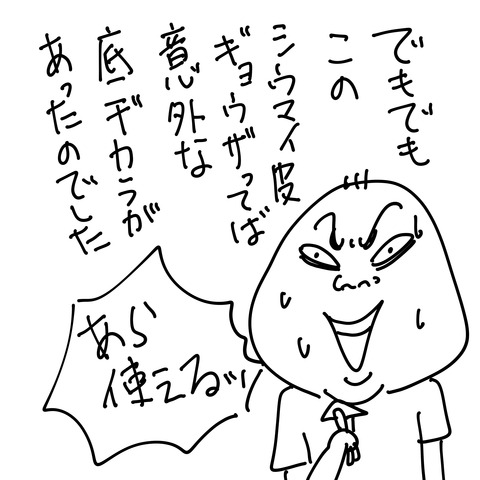 でもでも
この
シウマイ皮
ギョウザってば
意外な
底ヂカラが
あったのでした
あら
使えるッ